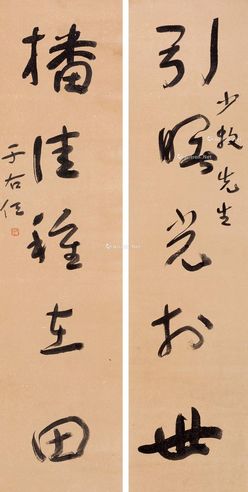 少牧先生
引曙光於世
播佳種在田
于右任